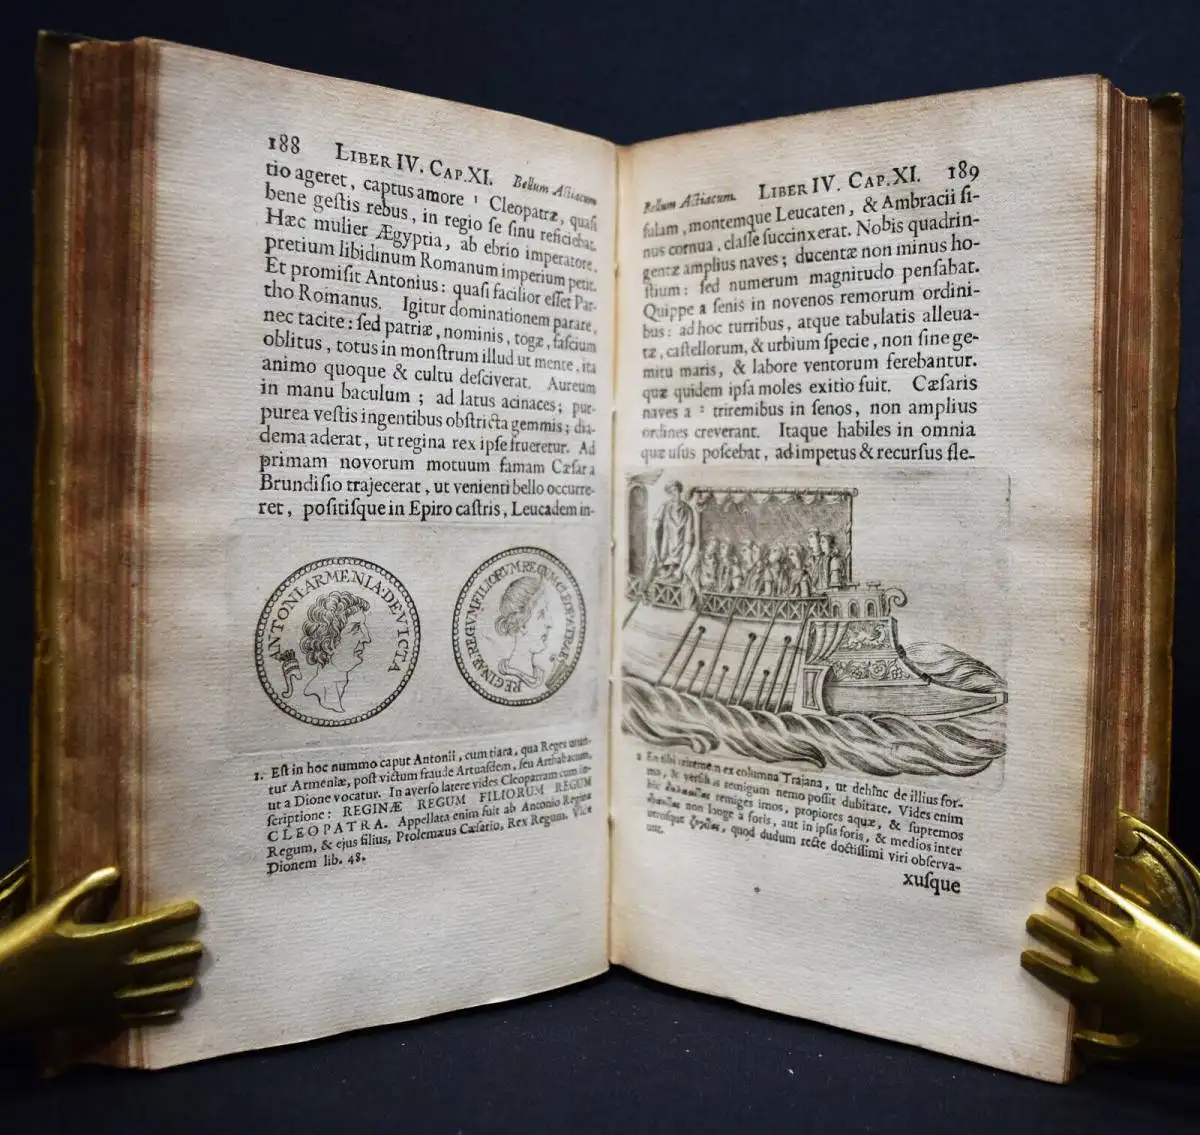 188 LIBER IV. CAP. XI. Bellum Actiacum
tio ageret, captus amore ¹ Cleopatræ, quaſi
bene geſtis rebus, in regio ſe ſinu reficiebat.
Hæc mulier Ægyptia, ab ebrio imperatore,
pretium libidinum Romanum imperium petit.
Et promiſit Antonius: quaſi facilior eſſet Par-
tho Romanus. Igitur dominationem parare,
nec tacite: ſed patriæ, nominis, togæ, faſcium
oblitus, totus in monſtrum illud ut mente, ita
animo quoque & cultu deſciverat. Aureum
in manu baculum; ad latus acinaces; pur-
purea veſtis ingentibus obſtricta gemmis; dia-
dema aderat, ut regina rex ipſe frueretur. Ad
primam novorum motuum famam Cæſar a
Brundiſio trajecerat, ut venienti bello occurre-
ret, poſitiſque in Epiro caſtris, Leucadem in-
ANTONI ARMENIA DEVICTA
REGINAE REGVM FILIORVM REGVM CLEOPATRAE
1. Eſt in hoc nummo caput Antonii, cum tiara, qua Reges utun-
tur Armeniæ, poſt victum fraude Artuaſdem, ſeu Artabazum,
ut a Dione vocatur. In averſo latere vides Cleopatram cum in-
ſcriptione: REGINÆ REGUM FILIORUM REGUM
CLEOPATRA. Appellata enim fuit ab Antonio Regina
Regum, & ejus filius, Ptolemæus Cæſario, Rex Regum. Vide
Dionem lib. 48.
Bellum Actiacum. LIBER IV. CAP. XI. 189
ſulam, montemque Leucaten, & Ambracii ſi-
nus cornua, claſſe ſuccinxerat. Nobis quadrin-
gentæ amplius naves; ducentæ non minus ho-
ſtium: ſed numerum magnitudo penſabat.
Quippe a ſenis in novenos remorum ordini-
bus: ad hoc turribus, atque tabulatis alleva-
tæ, caſtellorum, & urbium ſpecie, non ſine ge-
mitu maris, & labore ventorum ferebantur.
quæ quidem ipſa moles exitio fuit. Cæſaris
naves a ² triremibus in ſenos, non amplius
ordines creverant. Itaque habiles in omnia
quæ uſus poſcebat, ad impetus & recurſus fle-
2 En tibi triremem ex columna Trajana, ut dehinc de illius for-
ma, & verſibus remigum nemo poſſit dubitare. Vides enim
hic remiges imos, propiores aquæ, & ſupremos
non longe a foris, aut in ipſis foris, & medios inter
utroſque quod dudum recte doctiſſimi viri obſerva-
unt.
xuſque